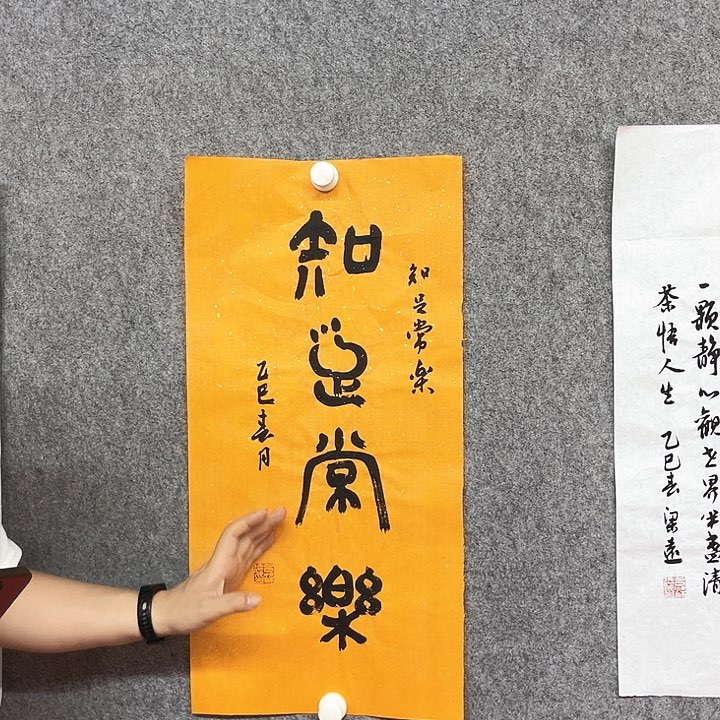 知足常樂
知足常樂
乙巳春月
一顆靜心觀世界半盞清
茶悟人生 乙巳春梁遠